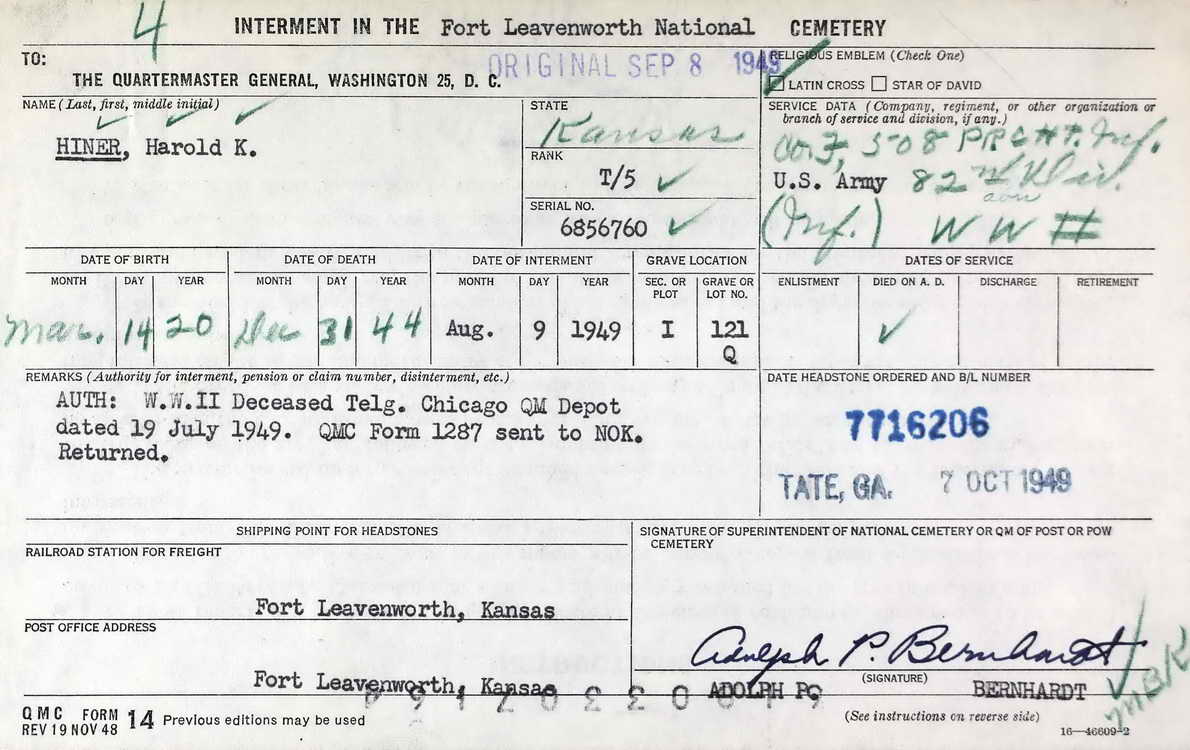 4
INTERMENT IN THE Fort Leavenworth National CEMETERY
TO:
THE QUARTERMASTER GENERAL, WASHINGTON 25, D. C.
ORIGINAL SEP 8 1949
RELIGIOUS EMBLEM (Check One)
LATIN CROSS STAR OF DAVID
NAME (Last, first, middle initial)
HINER, Harold K.
STATE
Kansas
RANK
T/5
SERIAL NO.
6856760
SERVICE DATA (Company, regiment, or other organization or
branch of service and division, if any.)
Co. F, 508 PRCHT. Inf.
U.S. Army 82nd Abn Div.
(Inf.) WW II
DATE OF BIRTH DATE OF DEATH DATE OF INTERMENT GRAVE LOCATION DATES OF SERVICE
MONTH DAY YEAR MONTH DAY YEAR MONTH DAY YEAR SEC. OR PLOT GRAVE OR LOT NO. ENLISTMENT DIED ON A. D. DISCHARGE RETIREMENT
Mar. 14 20 Dec 31 44 Aug. 9 1949 I 121
Q
REMARKS (Authority for interment, pension or claim number, disinterment, etc.)
AUTH: W.W.II Deceased Telg. Chicago QM Depot
dated 19 July 1949. QMC Form 1287 sent to NOK.
Returned.
DATE HEADSTONE ORDERED AND B/L NUMBER
7716206
TATE, GA. 7 OCT 1949
SHIPPING POINT FOR HEADSTONES
RAILROAD STATION FOR FREIGHT
Fort Leavenworth, Kansas
POST OFFICE ADDRESS
Fort Leavenworth, Kansas
SIGNATURE OF SUPERINTENDENT OF NATIONAL CEMETERY OR QM OF POST OR POW
CEMETERY
Adolph P. Bernhardt
(SIGNATURE)
ADOLPH P. BERNHARDT
MBK
QMC FORM
REV 19 NOV 48 14 Previous editions may be used
(See instructions on reverse side)
16—46609-2